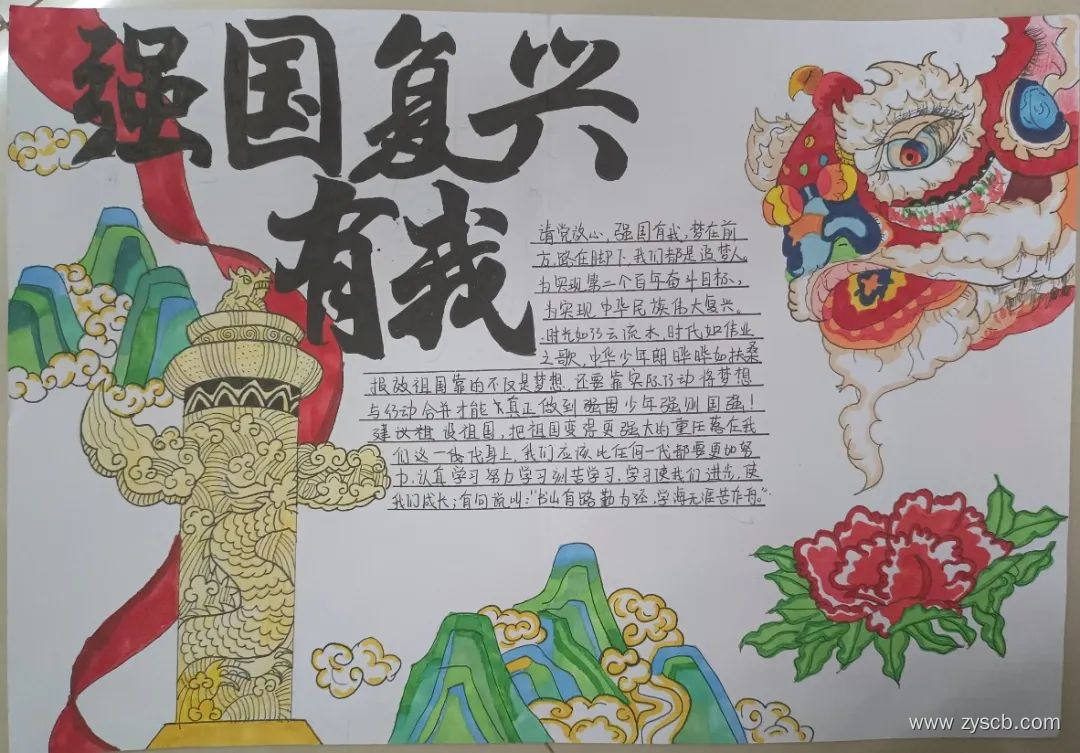 强国复兴
有我
请党放心,强国有我,梦在前
方,路在脚下,我们都是追梦人
为实现第二个百年奋斗目标,
为实现中华民族伟大复兴。
时光如行云流水,时代如伟业
之歌,中华少年朝晔晔如扶桑
报放祖国靠的不仅是梦想,还要靠实际行动将梦想
与行动合并才能真正做到强国少年强则国强!
建议祖设祖国,把祖国变得更强大的重任落在我
们这一代代身上,我们应该比任何一代都要更加努
力,认真学习努力学习刻苦学习,学习使我们进步,使
我们成长;有句说叫:“书山有路勤为径,学海无涯苦作舟。”
www.zyscb.com